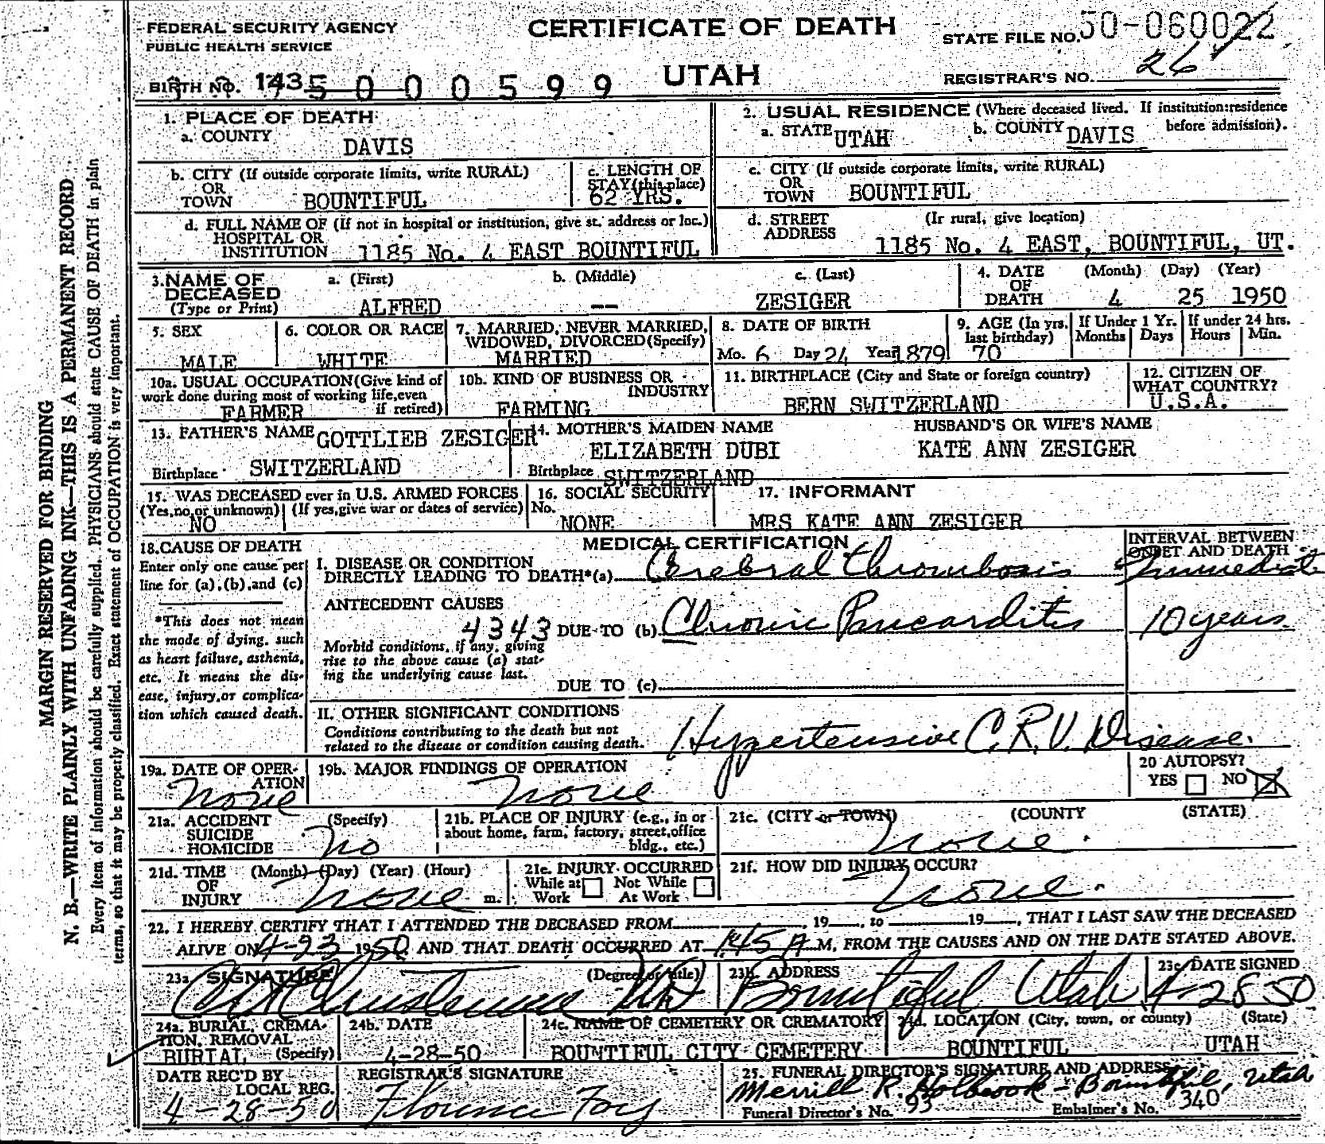 FEDERAL SECURITY AGENCY
PUBLIC HEALTH SERVICE
CERTIFICATE OF DEATH
STATE FILE NO. 50-060022
BIRTH NO. 143 5 0 0 0 5 9 9
UTAH
REGISTRAR'S NO. 26
1. PLACE OF DEATH
a. COUNTY
DAVIS
2. USUAL RESIDENCE (Where deceased lived. If institution:residence before admission).
a. STATE UTAH b. COUNTY DAVIS
b. CITY (If outside corporate limits, write RURAL)
OR
TOWN BOUNTIFUL
c. LENGTH OF
STAY (this place)
62 YRS.
c. CITY (If outside corporate limits, write RURAL)
OR
TOWN BOUNTIFUL
d. FULL NAME OF (If not in hospital or institution, give st. address or loc.)
HOSPITAL OR
INSTITUTION 1185 No. 4 EAST BOUNTIFUL
d. STREET (If rural, give location)
ADDRESS
1185 No. 4 EAST, BOUNTIFUL, UT.
3. NAME OF
DECEASED
(Type or Print)
a. (First) b. (Middle) c. (Last)
ALFRED -- ZESIGER
4. DATE (Month) (Day) (Year)
OF
DEATH 4 25 1950
5. SEX
MALE
6. COLOR OR RACE
WHITE
7. MARRIED, NEVER MARRIED,
WIDOWED, DIVORCED (Specify)
MARRIED
8. DATE OF BIRTH
Mo. 6 Day 24 Year 1879
9. AGE (In yrs.
last birthday)
70
If Under 1 Yr.
Months Days
If under 24 hrs.
Hours Min.
10a. USUAL OCCUPATION (Give kind of
work done during most of working life, even
if retired)
FARMER
10b. KIND OF BUSINESS OR
INDUSTRY
FARMING
11. BIRTHPLACE (City and State or foreign country)
BERN SWITZERLAND
12. CITIZEN OF
WHAT COUNTRY?
U.S.A.
13. FATHER'S NAME GOTTLIEB ZESIGER
Birthplace SWITZERLAND
14. MOTHER'S MAIDEN NAME
ELIZABETH DUBI
Birthplace SWITZERLAND
HUSBAND'S OR WIFE'S NAME
KATE ANN ZESIGER
15. WAS DECEASED ever in U.S. ARMED FORCES
(Yes, no, or unknown) (If yes, give war or dates of service)
NO
16. SOCIAL SECURITY
No.
NONE
17. INFORMANT
MRS KATE ANN ZESIGER
18. CAUSE OF DEATH
Enter only one cause per
line for (a), (b), and (c)
*This does not mean
the mode of dying, such
as heart failure, asthenia,
etc. It means the dis-
ease, injury, or complica-
tion which caused death.
MEDICAL CERTIFICATION
INTERVAL BETWEEN
ONSET AND DEATH
I. DISEASE OR CONDITION
DIRECTLY LEADING TO DEATH*(a) Cerebral Thrombosis Immediate
ANTECEDENT CAUSES
4343 DUE TO (b) Chronic Pancarditis 10 years
Morbid conditions, if any, giving
rise to the above cause (a) stat-
ing the underlying cause last.
DUE TO (c)
II. OTHER SIGNIFICANT CONDITIONS
Conditions contributing to the death but not
related to the disease or condition causing death.
Hypertensive C.R.V. Disease.
19a. DATE OF OPER-
ATION
None
19b. MAJOR FINDINGS OF OPERATION
None
20 AUTOPSY?
YES NO X
21a. ACCIDENT (Specify)
SUICIDE
HOMICIDE No
21b. PLACE OF INJURY (e.g., in or
about home, farm, factory, street, office
bldg., etc.)
21c. (CITY or TOWN) (COUNTY) (STATE)
None.
21d. TIME (Month) (Day) (Year) (Hour)
OF
INJURY None m.
21e. INJURY OCCURRED
While at Work Not While At Work
21f. HOW DID INJURY OCCUR?
None.
22. I HEREBY CERTIFY THAT I ATTENDED THE DECEASED FROM 19, to 19, THAT I LAST SAW THE DECEASED
ALIVE ON 4-23 1950 AND THAT DEATH OCCURRED AT 1:45 A M, FROM THE CAUSES AND ON THE DATE STATED ABOVE.
23a SIGNATURE (Degree or title)
MD
23b. ADDRESS
Bountiful Utah
23c DATE SIGNED
4-28 50
24a. BURIAL, CREMA-
TION, REMOVAL
(Specify)
BURIAL
24b. DATE
4-28-50
24c. NAME OF CEMETERY OR CREMATORY
BOUNTIFUL CITY CEMETERY
24d. LOCATION (City, town, or county) (State)
BOUNTIFUL UTAH
DATE REC'D BY
LOCAL REG.
4-28-50
REGISTRAR'S SIGNATURE
Florence Foy
25. FUNERAL DIRECTOR'S SIGNATURE AND ADDRESS
Merrill R. Holbrook - Bountiful, Utah
Funeral Director's No. 93 Embalmer's No. 340
MARGIN RESERVED FOR BINDING
N. B.—WRITE PLAINLY WITH UNFADING INK—THIS IS A PERMANENT RECORD
Every item of information should be carefully supplied. PHYSICIANS should state CAUSE OF DEATH in plain
terms, so that it may be properly classified. Exact statement of OCCUPATION is very important.